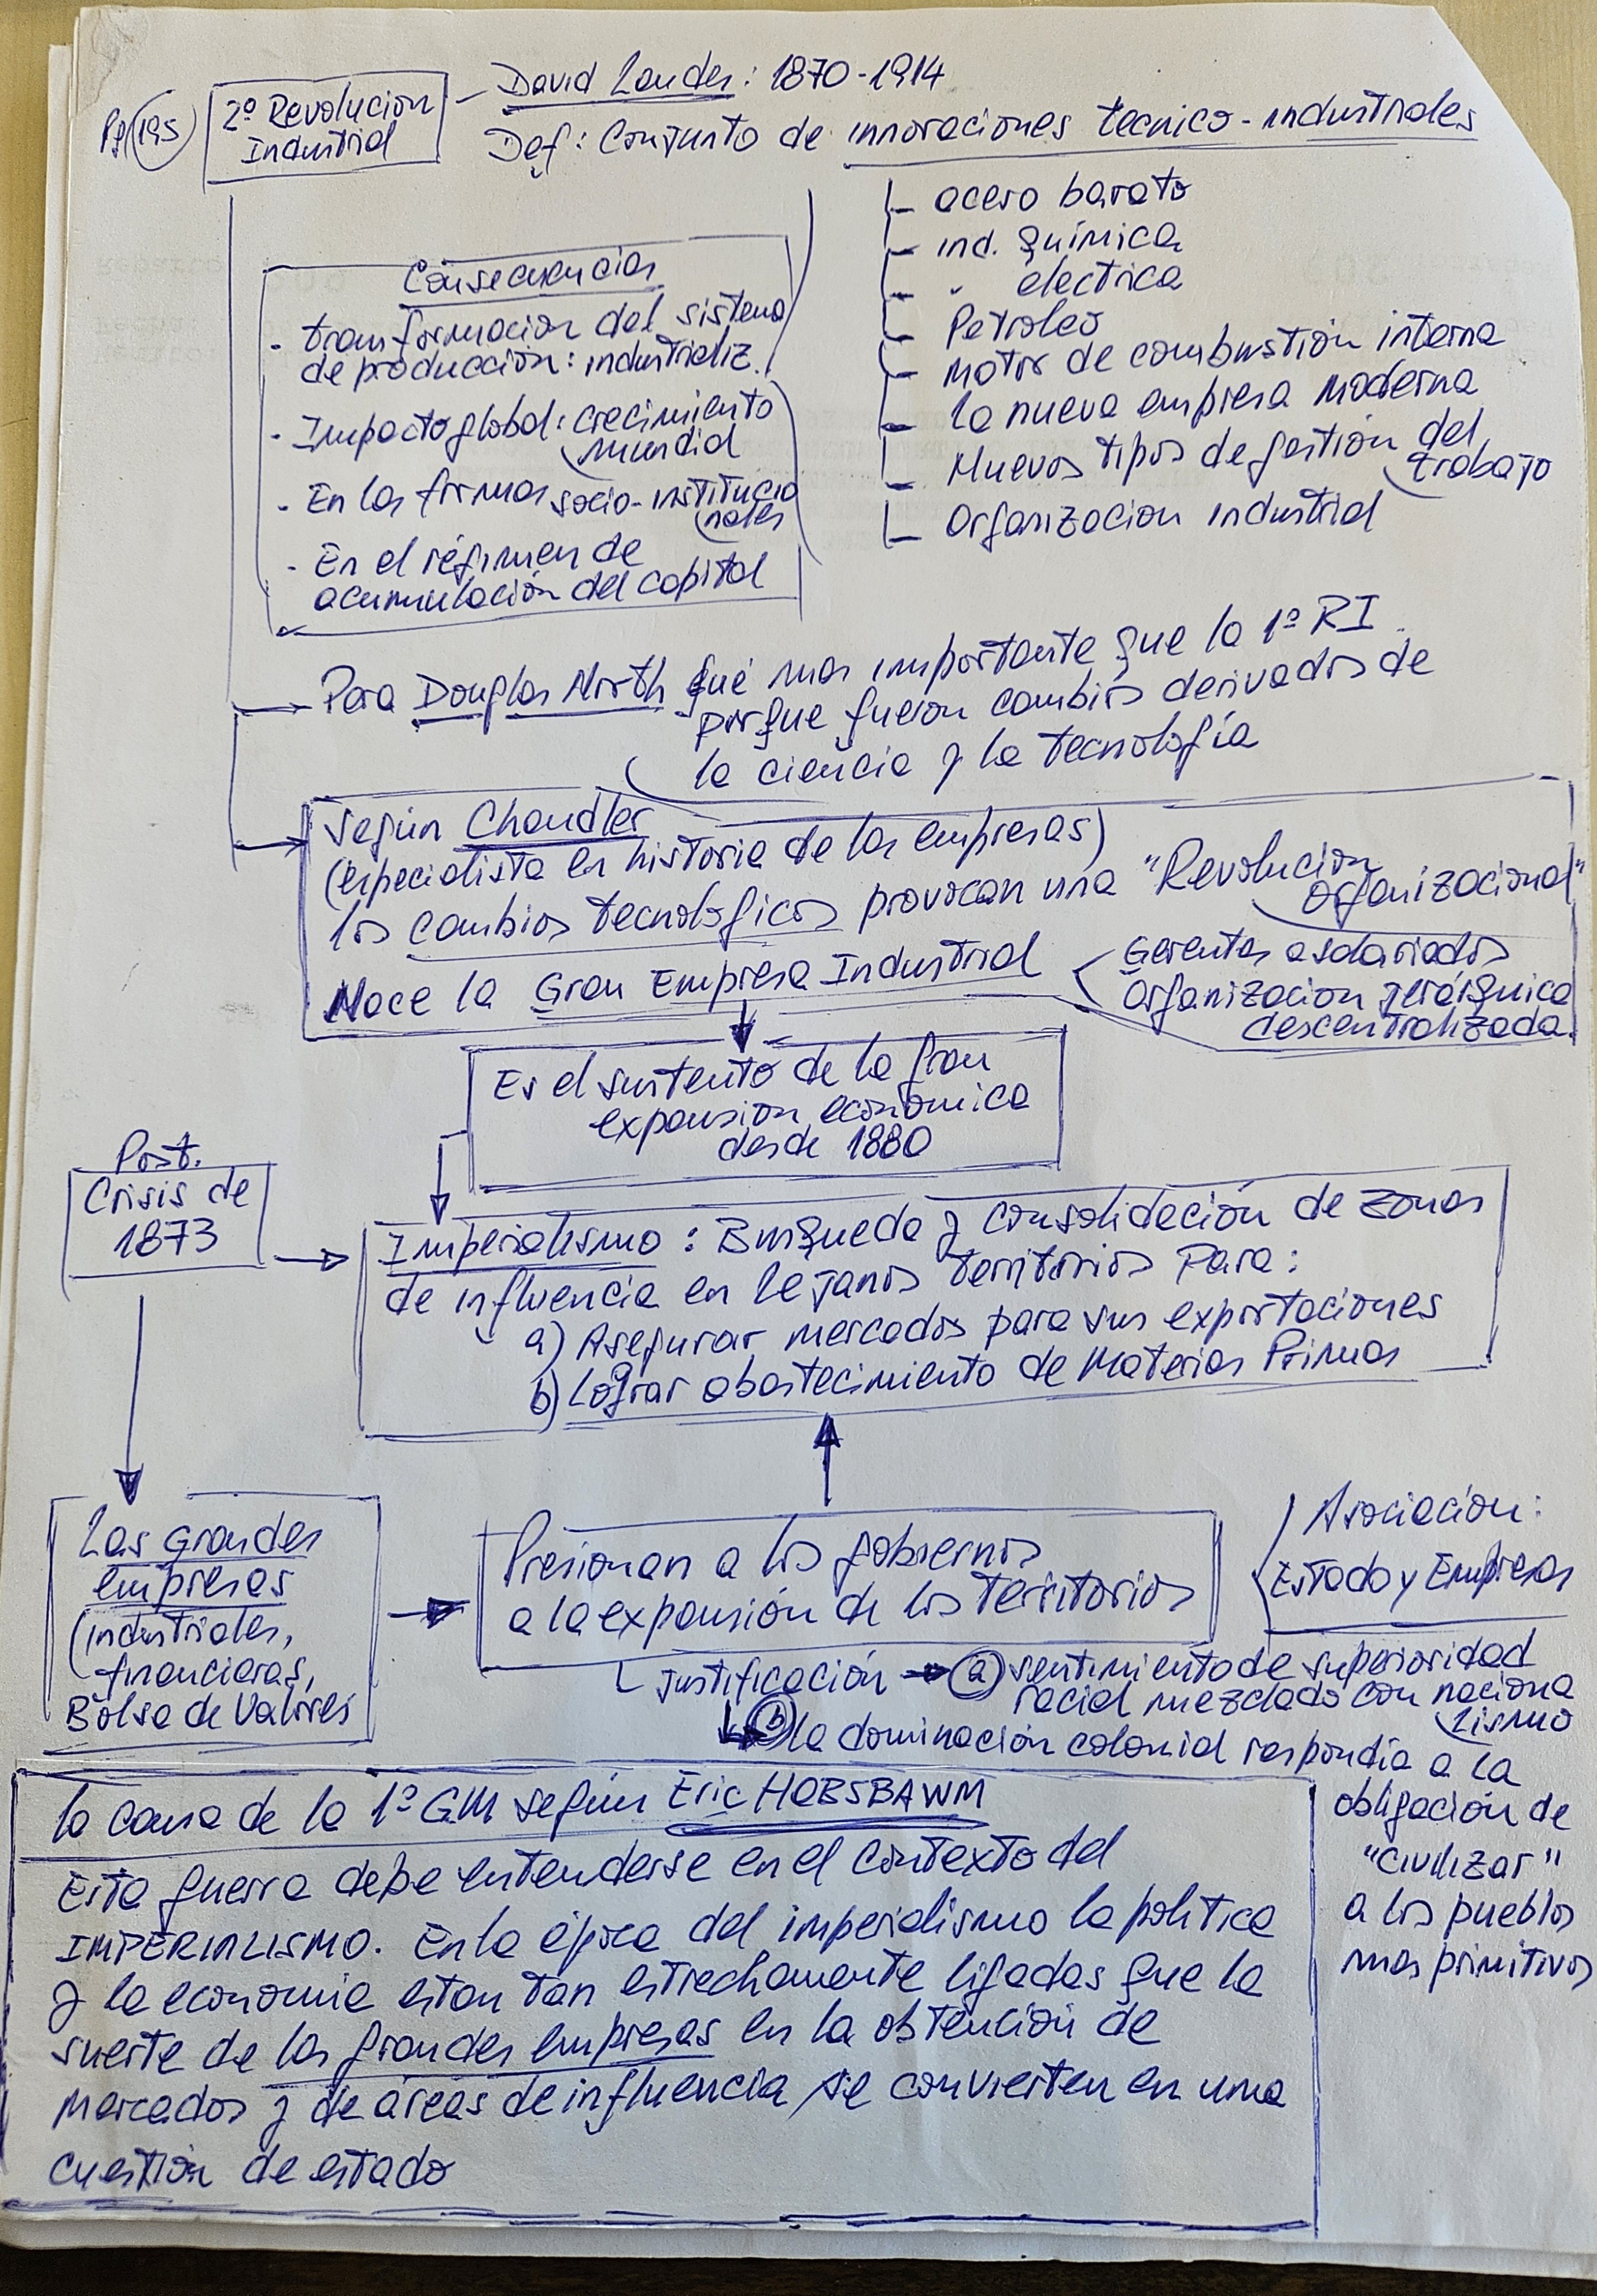 Pg 195
2º Revolucion
Industrial
David Landes: 1870-1914
Def: Conjunto de innovaciones tecnico-industriales
acero barato
ind. química
" electrica
Petroleo
Motor de combustión interna
La nueva empresa moderna
Nuevos tipos de gestión del
trabajo
Organizacion industrial
Consecuencias
- transformacion del sistema
de producción: industrializ.
- Impacto global: crecimiento
mundial
- En las formas socio-institucio
nales
- En el régimen de
acumulación del capital
Para Douglas North fué mas importante que la 1º RI
porque fueron cambios derivados de
la ciencia y la tecnología
Según Chandler
(especialista en historia de las empresas)
los cambios tecnologicos provocan una "Revolucion
organizacional"
Nace la Gran Empresa Industrial
Gerentes asalariados
Organizacion jerárquica
descentralizada.
Es el sustento de la gran
expansion economica
desde 1880
Post.
Crisis de
1873
Imperialismo: Busqueda y consolidación de zonas
de influencia en lejanos territorios Para:
a) Asegurar mercados para sus exportaciones
b) Lograr abastecimiento de Materias Primas
Las grandes
empresas
(industriales,
financieras,
Bolsa de Valores
Presionan a los gobiernos
a la expansión de los territorios
Asociación:
Estado y Empresas
Justificación → a sentimiento de superioridad
racial mezclado con naciona
lismo
b la dominación colonial respondía a la
obligación de
"civilizar"
a los pueblos
mas primitivos
la causa de la 1º GM según Eric HOBSBAWM
Esta guerra debe entenderse en el contexto del
IMPERIALISMO. En la época del imperialismo la politica
y la economia estan tan estrechamente ligadas que la
suerte de las grandes empresas en la obtención de
mercados y de áreas de influencia se convierten en una
cuestión de estado